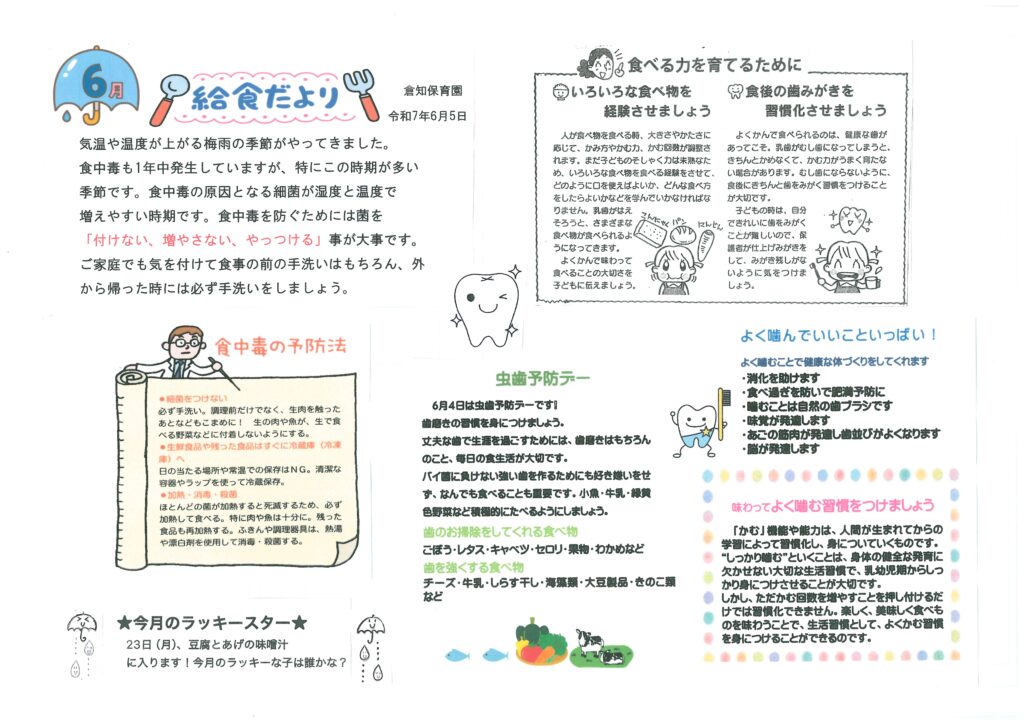 6月
給食だより
倉知保育園
令和7年6月5日
気温や湿度が上がる梅雨の季節がやってきました。
食中毒も1年中発生していますが、特にこの時期が多い
季節です。食中毒の原因となる細菌が湿度と温度で
増えやすい時期です。食中毒を防ぐためには菌を
「付けない、増やさない、やっつける」事が大事です。
ご家庭でも気を付けて食事の前の手洗いはもちろん、外
から帰った時には必ず手洗いをしましょう。
食べる力を育てるために
いろいろな食べ物を
経験させましょう
人が食べ物を食べる時、大きさやかたさに
応じて、かみ方やかむ力、かむ回数が調整さ
れます。まだ子どものそしゃく力は未熟なた
め、いろいろな食べ物を食べる経験をさせて、
どのように口を使えばよいか、どんな食べ方
をしたらよいかなどを学んでいかなければな
りません。乳歯がはえ
そろうと、さまざまな
食べ物が食べられるよ
うになってきます。
よくかんで味わって
食べることの大切さを
子どもに伝えましょう。
こんにゃく
パン
にんじん
食後の歯みがきを
習慣化させましょう
よくかんで食べられるのは、健康な歯が
あってこそ。乳歯がむし歯になってしまうと、
きちんとかめなくて、かむ力がうまく育たな
い場合があります。むし歯にならないように、
食後にきちんと歯をみがく習慣をつけること
が大切です。
子どもの時は、自分
できれいに歯をみがく
ことが難しいので、保
護者が仕上げみがきを
して、みがき残しがな
いように気をつけま
しょう。
食中毒の予防法
●細菌をつけない
必ず手洗い。調理前だけでなく、生肉を触った
あとなどもこまめに！ 生の肉や魚が、生で食
べる野菜などに付着しないようにする。
●生鮮食品や残った食品はすぐに冷蔵庫（冷凍
庫）へ
日の当たる場所や常温での保存はNG。清潔な
容器やラップを使って冷蔵保存。
●加熱・消毒・殺菌
ほとんどの菌が加熱すると死滅するため、必ず
加熱して食べる。特に肉や魚は十分に。残った
食品も再加熱する。ふきんや調理器具は、熱湯
や漂白剤を使用して消毒・殺菌する。
★今月のラッキースター★
23日（月）、豆腐とあげの味噌汁
に入ります！今月のラッキーな子は誰かな？
虫歯予防デー
6月4日は虫歯予防デーです!
歯磨きの習慣を身につけましょう。
丈夫な歯で生涯を過ごすためには、歯磨きはもちろん
のこと、毎日の食生活が大切です。
バイ菌に負けない強い歯を作るためにも好き嫌いをせ
ず、なんでも食べることも重要です。小魚・牛乳・緑黄
色野菜など積極的にたべるようにしましょう。
歯のお掃除をしてくれる食べ物
ごぼう・レタス・キャベツ・セロリ・果物・わかめなど
歯を強くする食べ物
チーズ・牛乳・しらす干し・海藻類・大豆製品・きのこ類
など
よく噛んでいいこといっぱい！
よく噛むことで健康な体づくりをしてくれます
・消化を助けます
・食べ過ぎを防いで肥満予防に
・噛むことは自然の歯ブラシです
・味覚が発達します
・あごの筋肉が発達し歯並びがよくなります
・脳が発達します
味わってよく噛む習慣をつけましょう
「かむ」機能や能力は、人間が生まれてからの
学習によって習慣化し、身についていくものです。
“しっかり噛む”といくことは、身体の健全な発育に
欠かせない大切な生活習慣で、乳幼児期からしっ
かり身につけさせることが大切です。
しかし、ただかむ回数を増やすことを押し付けるだ
けでは習慣化できません。楽しく、美味しく食べも
のを味わうことで、生活習慣として、よくかむ習慣
を身につけることができるのです。